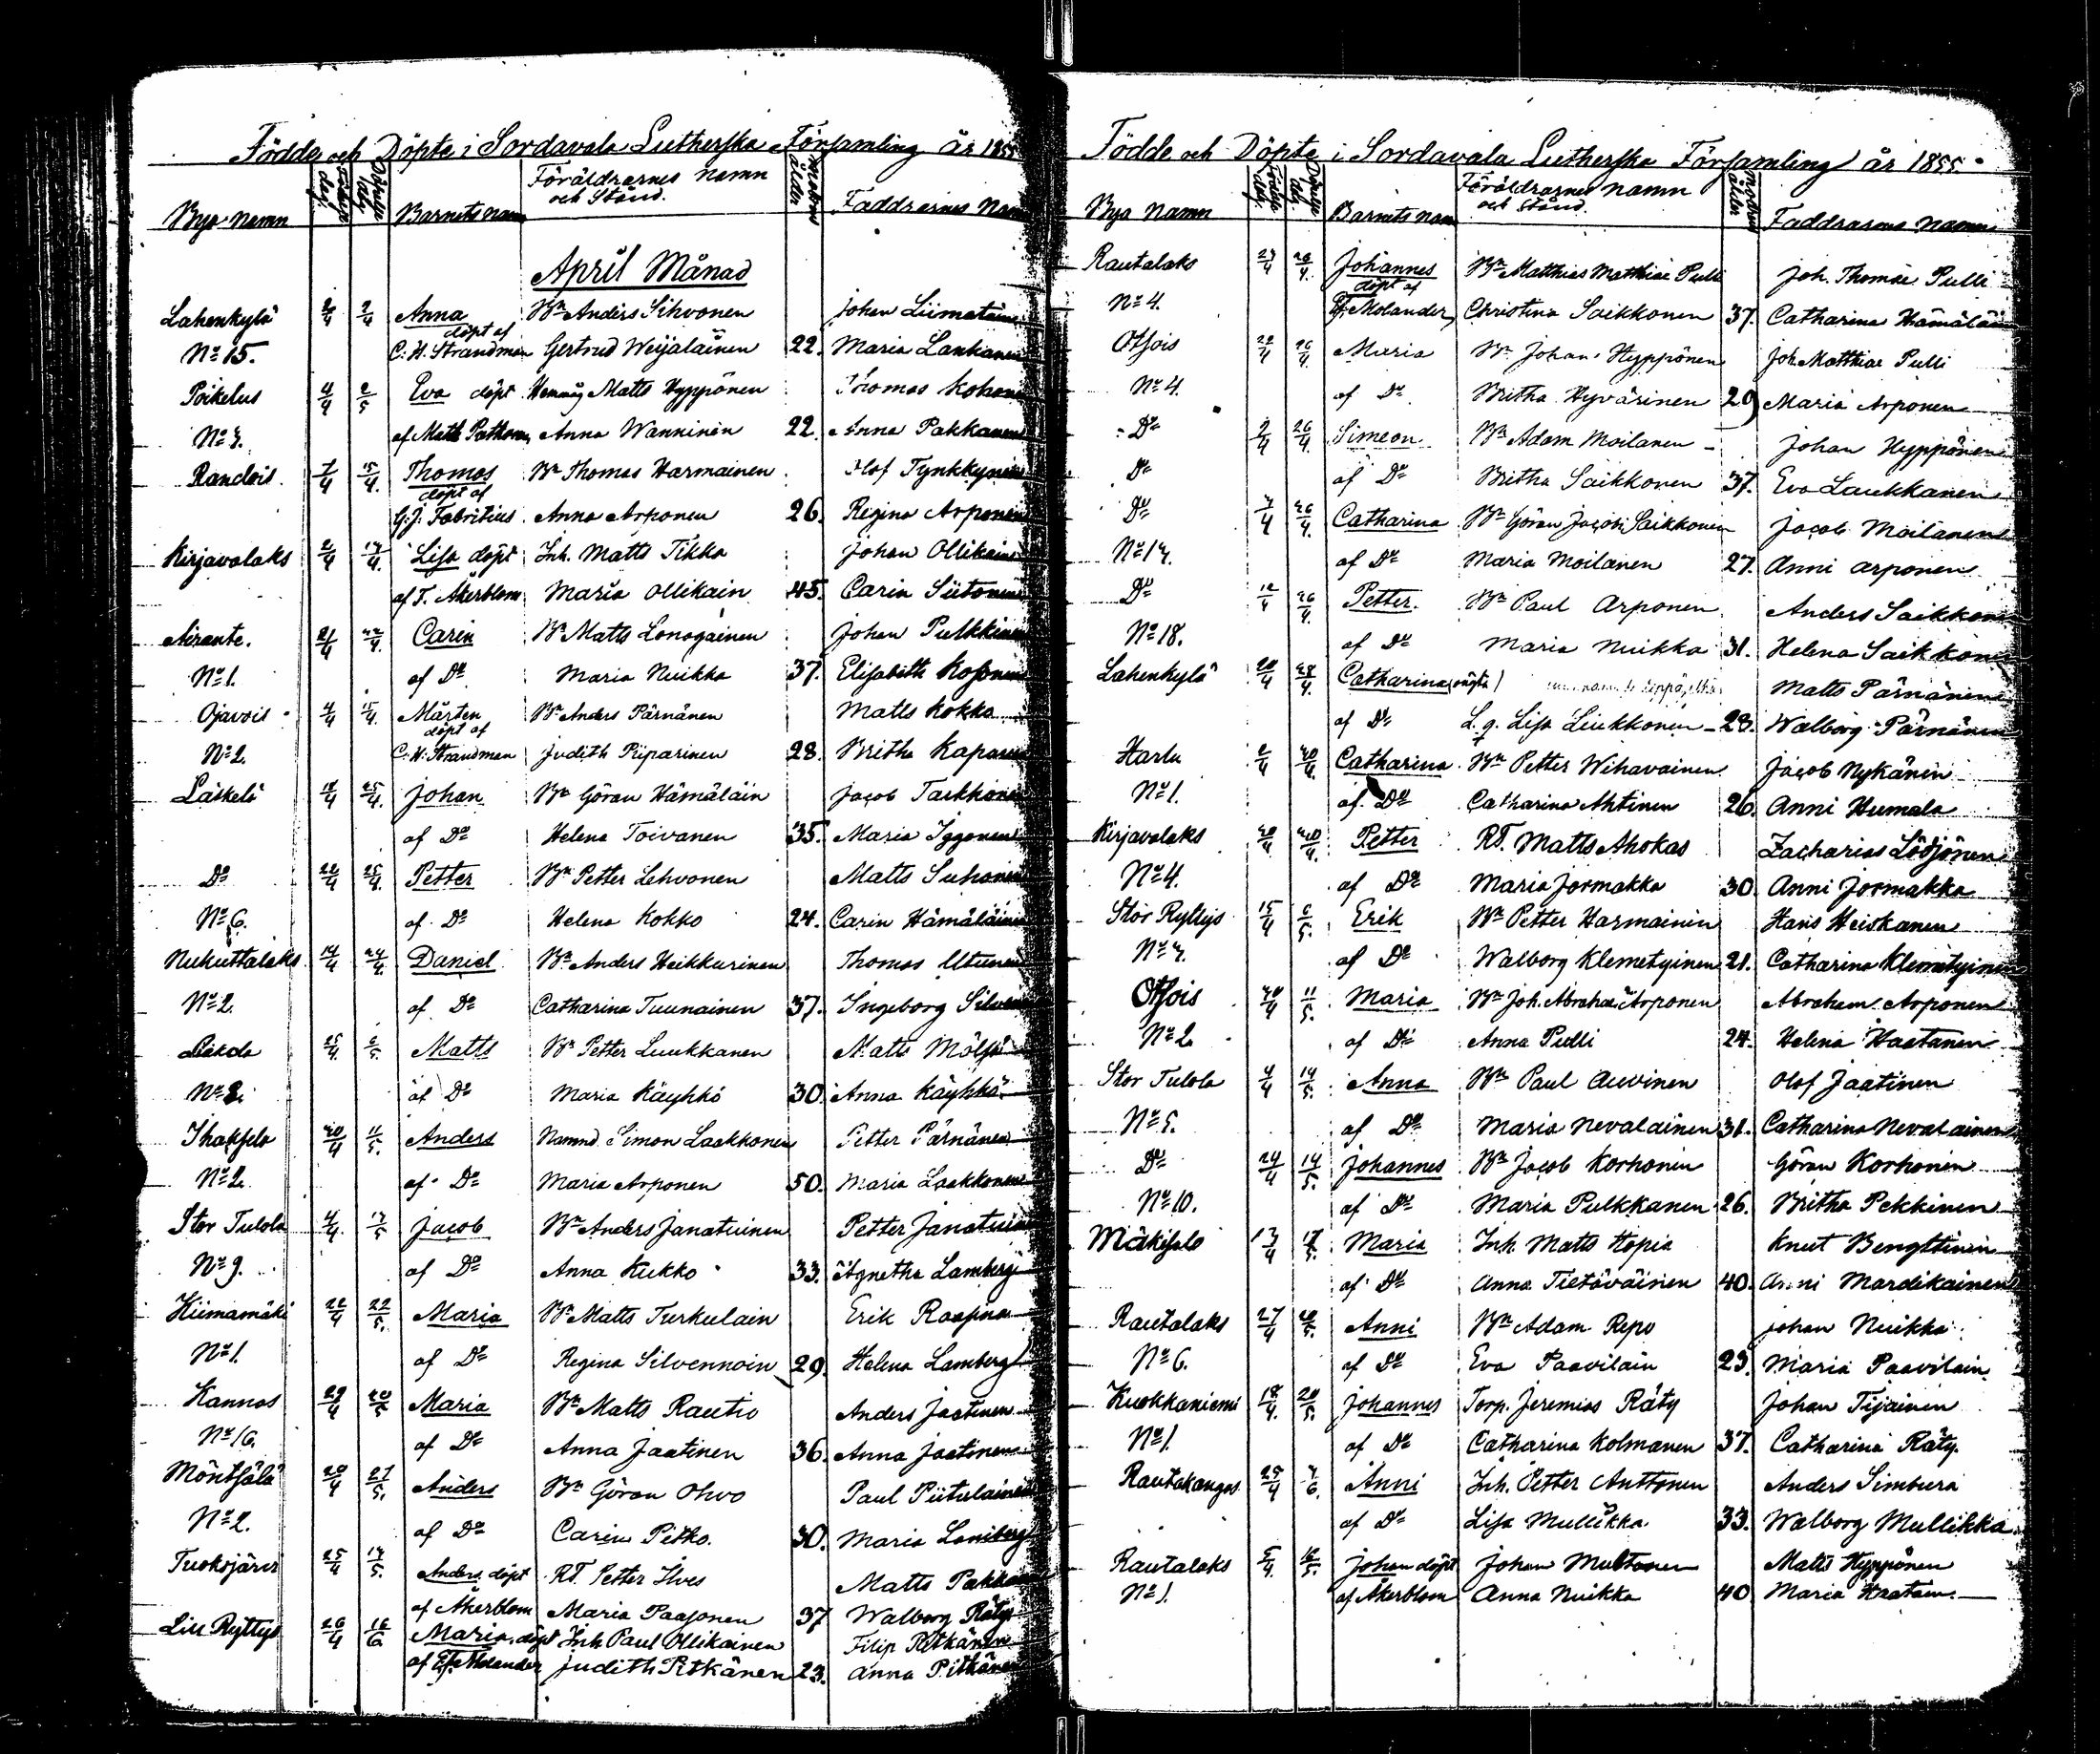 Födde och Döpte i Sordavala Lutherska Församling år 1855
Bya namn Födelse dag Döpelse dag Barnets namn Föräldrarnes namn och Stånd. Modrens ålder Faddrarnes Namn
April Månad
Lahenkylä 2/4 2/4 Anna Bn Anders Sihvonen Johan Liimatain
No 15. döpt af C. H. Strandman Gertrud Weijaläinen 22. Maria Lankanen
Poikelus 4/4 2/5 Eva döpt Hemmg Matts Hyppönen Thomas Kohonen
No 3. af Math Pathom Anna Wanninen 22. Anna Pakkanen
Randois 7/4 15/4 Thomas Bn Thomas Harmainen Olof Tynkkynen
döpt af G. J. Fabritius. Anna Arponen 26. Regina Arponen
Kirjavalaks 2/4 Lisa döpt Inh. Matts Tikka Johan Ollikain
af T. Åkerblom Maria Ollikain 45. Carin Siitonen
Airante. 21/4 22/4 Carin Bn Matts Lonogainen Johan Pulkkinen
No 1. af Do Maria Nuikka 37. Elisabeth Kosonen
Ojavois 4/4 15/4 Mårten Bn Anders Pärnänen Matts Kokko
No 2. döpt af C. H. Strandman Judith Piiparinen 28. Britha Kaparen
Läskelä 18/4 25/4 Johan Bn Göran Hämäläin Jacob Tarkkonen
af Do Helena Toivanen 35. Maria Iggonen
Do 22/4 25/4 Petter Bn Petter Lehvonen Matts Suhonen
No 6. af Do Helena Kokko 24. Carin Hämäläinen
Nukuttalaks 14/4 24/4 Daniel Bn Anders Heikkurinen Thomas Utunen
No 2. af Do Catharina Tuunainen 37. Ingeborg Silvan
Leikola 25/4 6/5 Matts Bn Petter Luukkanen Matts Mölsä
No 2. af Do Maria Käyhkö 30. Anna Käyhkö
Ihaksela 20/4 11/5 Anders Namnd. Simon Laakkonen Petter Pärnänen
No 2. af Do Maria Arponen 50. Maria Laakkonen
Stor Tulola 4/4 13/5 Jacob Bn Anders Janatuinen Petter Janatuin
No 9. af Do Anna Kukko 33. Agnetha Lamberg
Kiimamäki 22/4 22/5 Maria Bn Matts Turkulain Erik Raasina
No 1. af Do Regina Silvennoin 29. Helena Lamberg
Kannas 29/4 20/5 Maria Bn Matts Rautio Anders Jaatinen
No 16. af Do Anna Jaatinen 36. Anna Jaatinen
Möntsälä 20/4 27/5 Anders Bn Göran Ohvo Paul Piitulainen
No 2. af Do Carin Pitko. 30. Maria Lamberg
Tuoksjärvi 25/4 13/5 Anders döpt RT. Petter Ilves Matts Pakka
af Åkerblom Maria Paasonen 37 Walborg Räty
Lill Ryttys 26/4 16/6 Maria, döpt Inh Paul Ollikainen Filip Pitkänen
af Ef. Molander Judith Pitkänen 23. Anna Pitkänen
Födde och Döpte i Sordavala Lutherska Församling år 1855.
Bya Namn Födelse dag Döpelse dag Barnets namn Föräldrarnes namn och Stånd. Modrens ålder Faddrarnes Namn
Rautalaks 23/4 26/4 Johannes Bn Matthias Matthiæ Pulli Joh. Thomæ Pulli
No 4. döpt af Ef. Molander, Christina Saikkonen 37. Catharina Hämäläin
Otsois 22/4 26/4 Maria Bn Johan Hyppönen Joh Matthiae Pulli
No 4. af Do Britha Hyvärinen 29 Maria Arponen
Do 2/4 26/4 Simeon Bn Adam Moilanen Johan Hyppönen
Do af Do Britha Saikkonen 37. Eva Laukkanen
Do 7/4 26/4 Catharina Bn Göran Jacobi Saikkonen Jacob Moilanen
No 17. af Do Maria Moilanen 27. Anni Arponen
Do 12/4 26/4 Petter. Bn Paul Arponen Anders Saikkonen
No 18. af Do Maria Nuikka 31. Helena Saikkonen
Lahenkylä 20/4 28/4 Catharina (oägta) Matts Pärnänen
af Do L. q. Lisa Liukkonen 28. Walborg Pärnänen
Harlu 2/4 30/4 Catharina Bn Petter Wihavainen Jacob Nykänen
No 1. af Do Catharina Ahtinen 26. Anni Humala
Kirjavalaks 20/4 30/4 Petter RT. Matts Ahokas Zacharias Lödjönen
No 4. af Do Maria Jormakka 30. Anni Jormakka
Stor Ryttys 15/4 6/5 Erik Bn Petter Harmainin Hans Heiskanen
No 3. af Do Walborg Klemetyinen 21. Catharina Klemetyinen
Otsois 30/4 11/5 Maria Bn Joh. Abrahæ Arponen Abraham Arponen
No 2. af Do Anna Pulli 24. Helena Haatanen
Stor Tulola 4/4 14/5 Anna Bn Paul Auvinen Olof Jaatinen
No 5. af Do Maria Nevalainen 31. Catharina Nevalainen
Do 24/4 14/5 Johannes Bn Jacob Korhonen Göran Korhonen
No 10. af Do Maria Pulkkanen 26. Britha Pekkinen
Mäkisalo 13/4 17/5 Maria Inh. Matts Hopia Knut Bengttinen
af Do Anna Tietäväinen 40. Anni Mardikainen
Rautalaks 27/4 20/5 Anni Bn Adam Repo Johan Nuikka
No 6. af Do Eva Paavilain 23. Maria Paavilain
Kuokkaniemi 18/4 20/5 Johannes Torp. Jeremias Räty Johan Tijainen
No 1. af Do Catharina Kolmanen 37. Catharina Räty
Rautakangas 25/4 3/6 Anni Inh. Petter Anttonen Anders Simbura
af Do Lisa Mullikka 33. Walborg Mullikka
Rautalaks 5/4 16/5 Johan döpt Johan Multonen Matts Hyppönen
No 1. af Åkerblom Anna Nuikka 40 Maria Haatain.